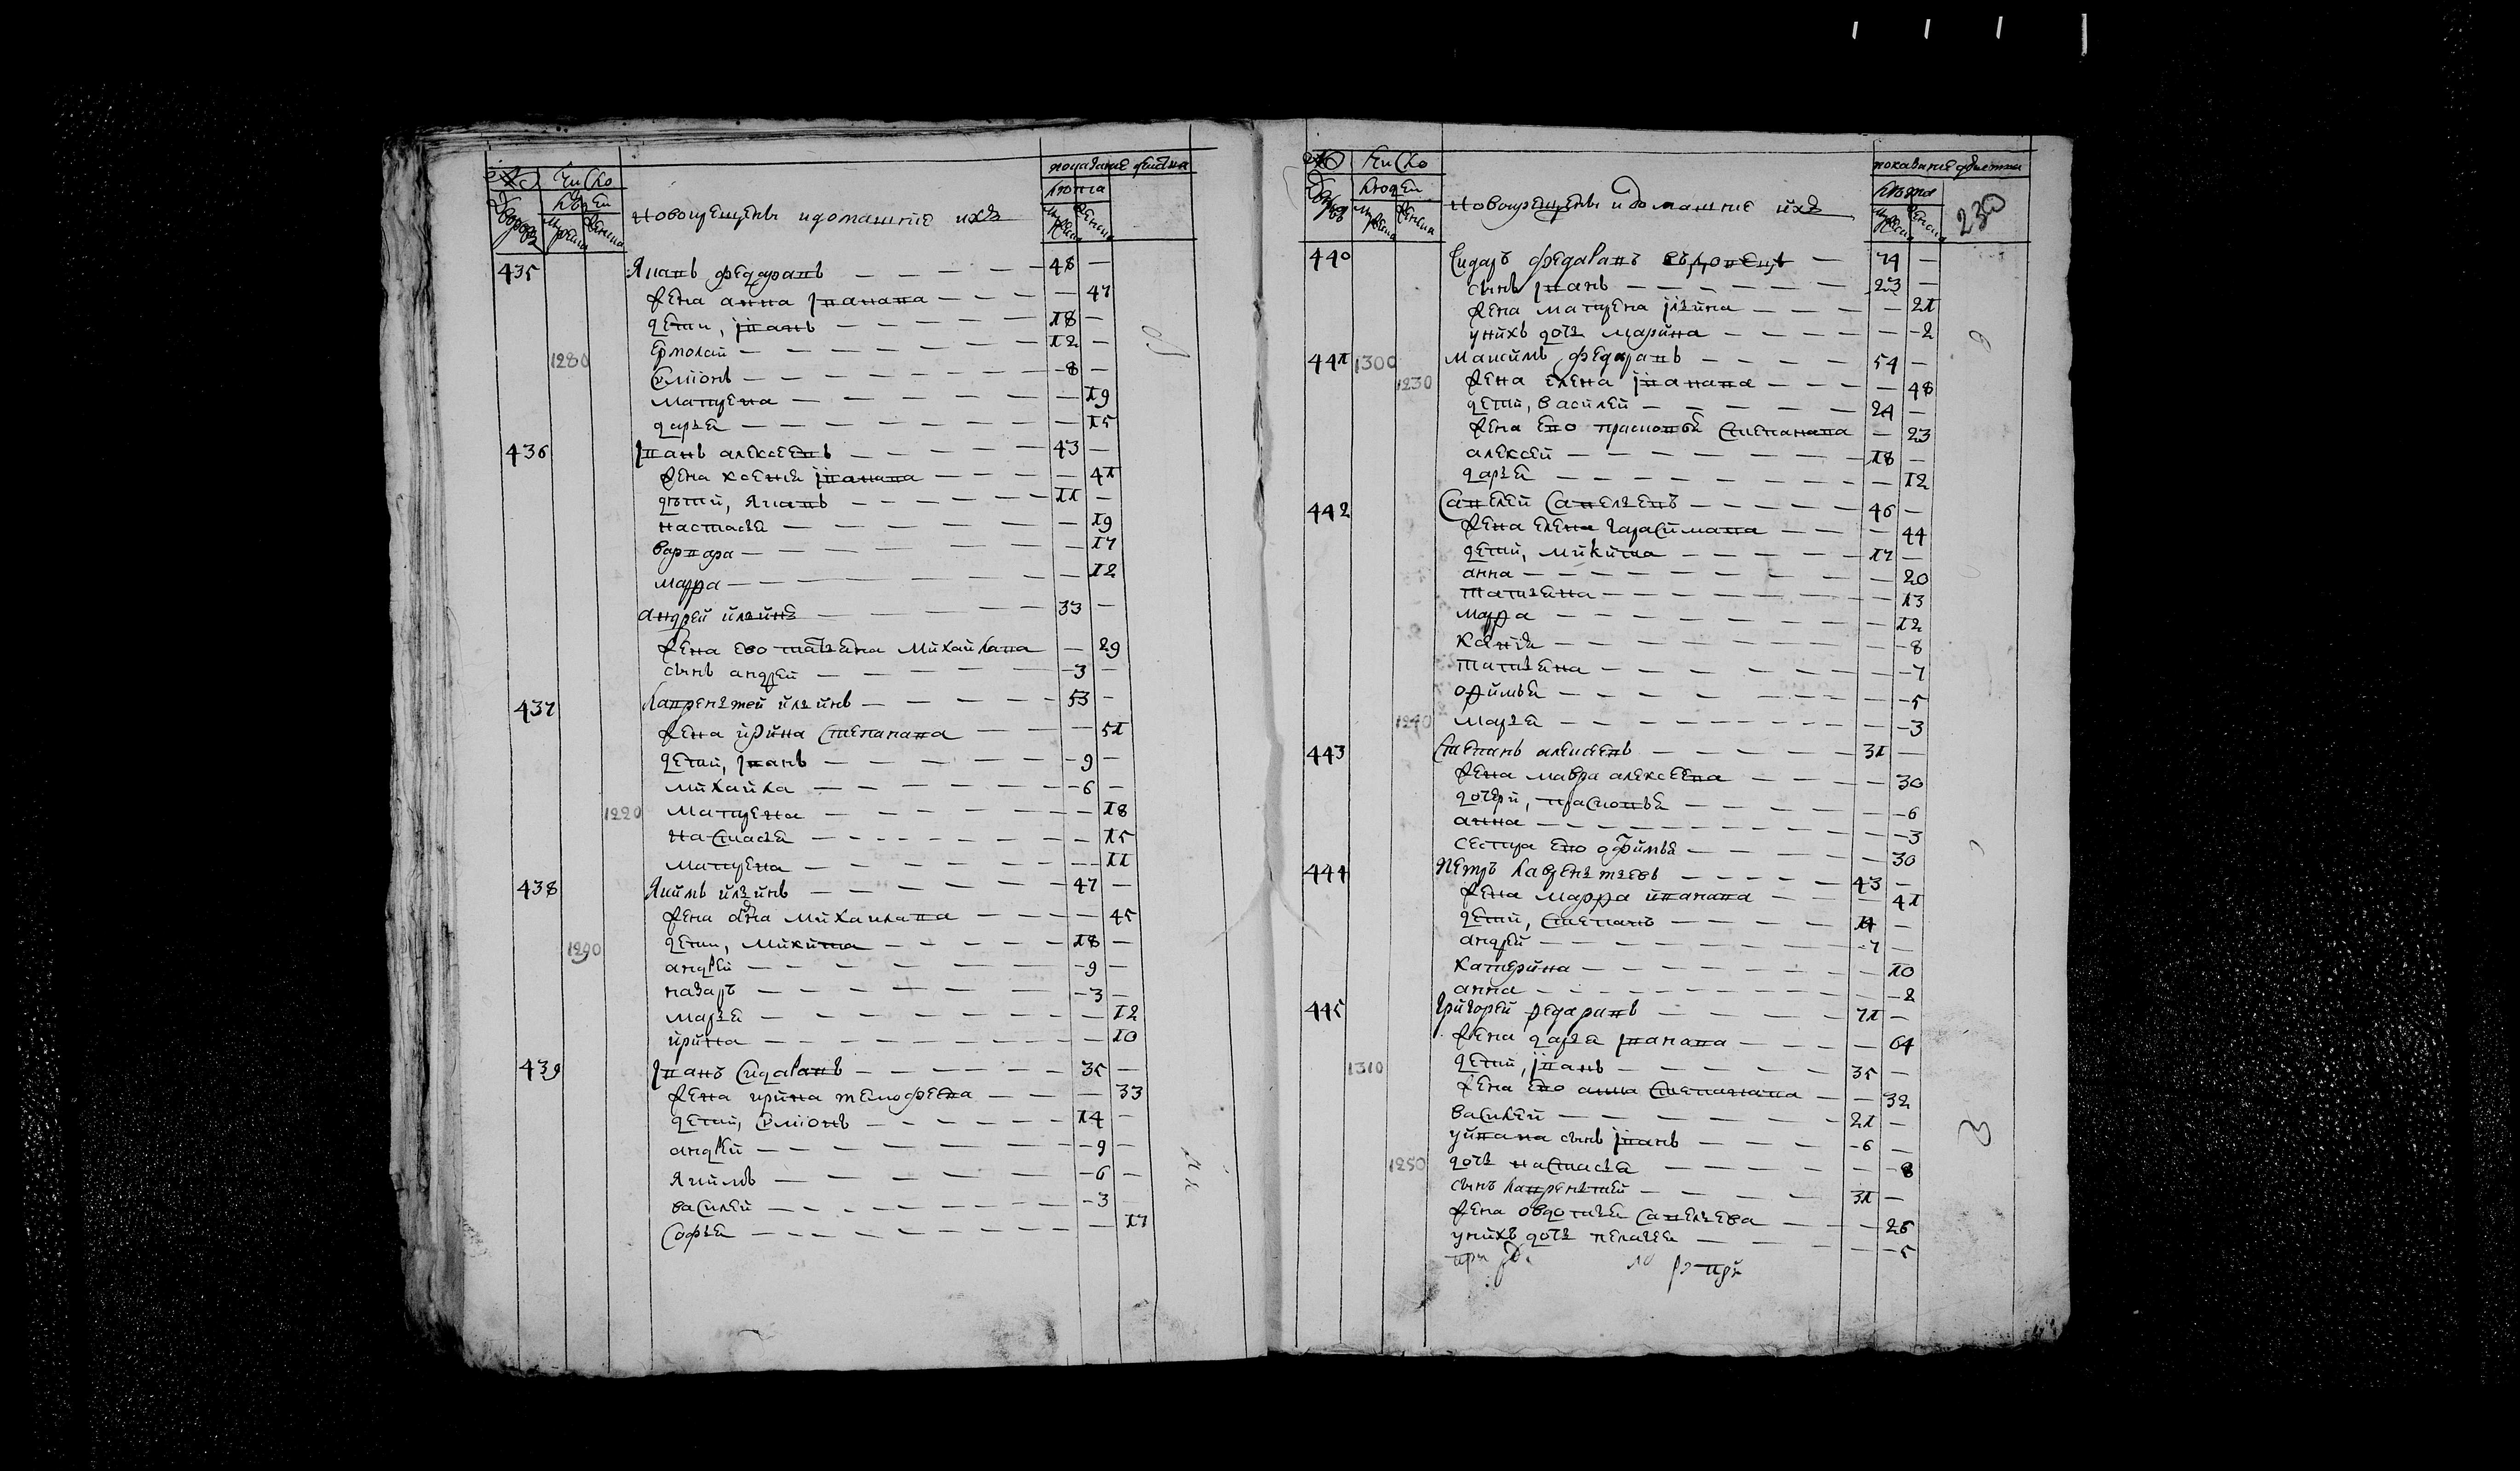 № Число показание обитиа
дворовъ людей лѣта
мужеска женска новокрещенъ и домашние ихъ мужеска женска
435 Якавъ федаравъ 48 —
жена анна Iванава — 47
дети, iванъ 18 —
Ермолай 12 —
1280 Семионъ 8 —
матрена — 19
дарья — 15
436 Iванъ алексеевъ 43 —
жена ксенья iванава — 41
дѣти, Якавъ 11 —
настасья — 19
варвара — 17
марфа — 12
андрей ильинъ 33 —
жена ево татьяна михайлава — 29
сынъ андрей 3 —
437 Лаврентей ильинъ 53 —
жена ирина степанава — 51
дети, Iванъ 9 —
михайла 6 —
1220 матрена — 18
настасья — 15
матрена — 11
438 Якимъ ильинъ 47 —
жена анна михаилава — 45
дети, микита 18 —
1290 андрей 9 —
назаръ 3 —
марья — 12
ирина — 10
439 Iванъ Сидаравъ 35 —
жена ирина тимофеева — 33
дети, Семионъ 14 —
андрей 9 —
Якимъ 6 —
василей 3 —
Софья — 17
№ Число показание обиетии
дворовъ людей лѣта 230
мужеска женска новокрещенъ и домашние ихъ мужеска женска
440 Сидаръ федаравъ 74 —
сынъ Iванъ 23 —
жена матрена iльина — 21
у нихъ дочь марина — 2
441 1300 максимъ федаравъ 54 —
1230 жена елена iванава — 48
дети, василей 24 —
жена ево прасковья Степанава — 23
алексей 18 —
дарья — 12
442 Савелей Савельевъ 46 —
жена елена гарасимава — 44
дети, микита 17 —
анна — 20
татьяна — 13
марфа — 12
ксенья — 8
татьяна — 7
офимья — 5
1240 марья — 3
443 Степанъ алексеевъ 31 —
жена мавра алексеева — 30
дочери, прасковья — 6
анна — 3
сестра ево офимья — 30
444 Петръ лаврентьевъ 43 —
жена марфа иванава — 41
дети, Степанъ 11 —
андрей 7 —
катерина — 10
анна — 2
445 Григорей федаравъ 71 —
жена дарья Iванава — 64
1310 дети, iванъ 35 —
жена ево анна Степанава — 32
василей 21 —
у ивана сынъ iванъ 6 —
1250 дочь настасья — 8
сынъ лаврентей 31 —
жена овдотья савельева — 26
у нихъ дочь пелагея — 5